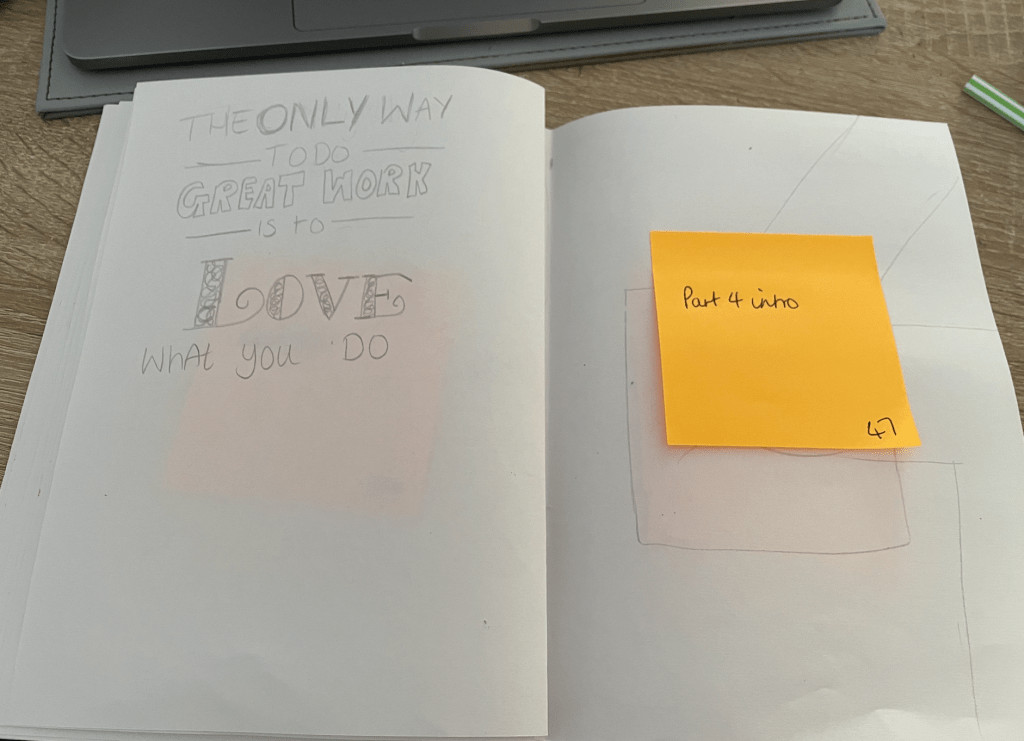 THE ONLY WAY
TO DO
GREAT WORK
is to
LOVE
WhAt you DO
Part 4 intro
47